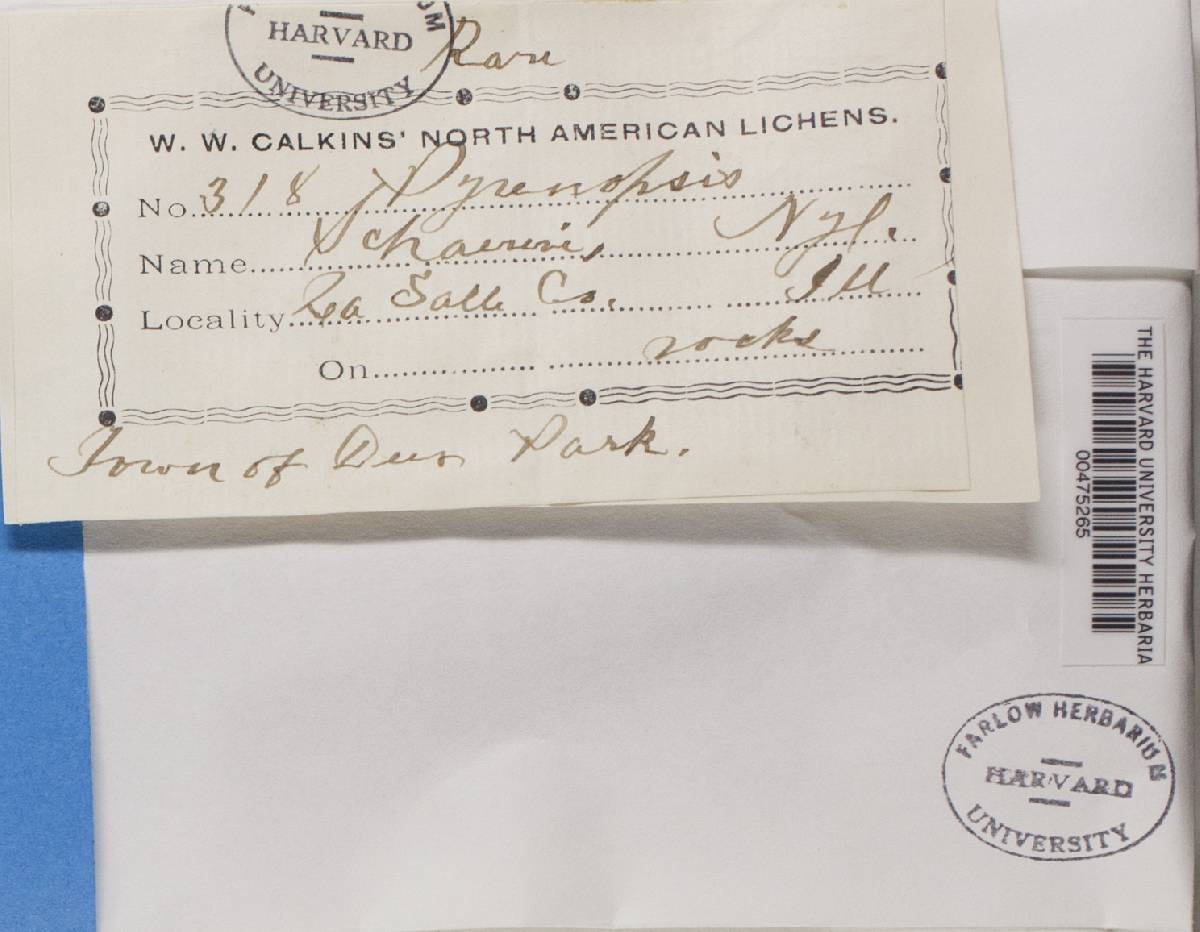 HARVARD
UNIVERSITY
Rare
W. W. CALKINS' NORTH AMERICAN LICHENS.
No. 318 Pyrenopsis
Name Schaereri, Nyl.
Locality La Salle Co. Ill
On rocks
Town of Deer Park.
THE HARVARD UNIVERSITY HERBARIA
00475265
FARLOW HERBARIUM
HARVARD
UNIVERSITY